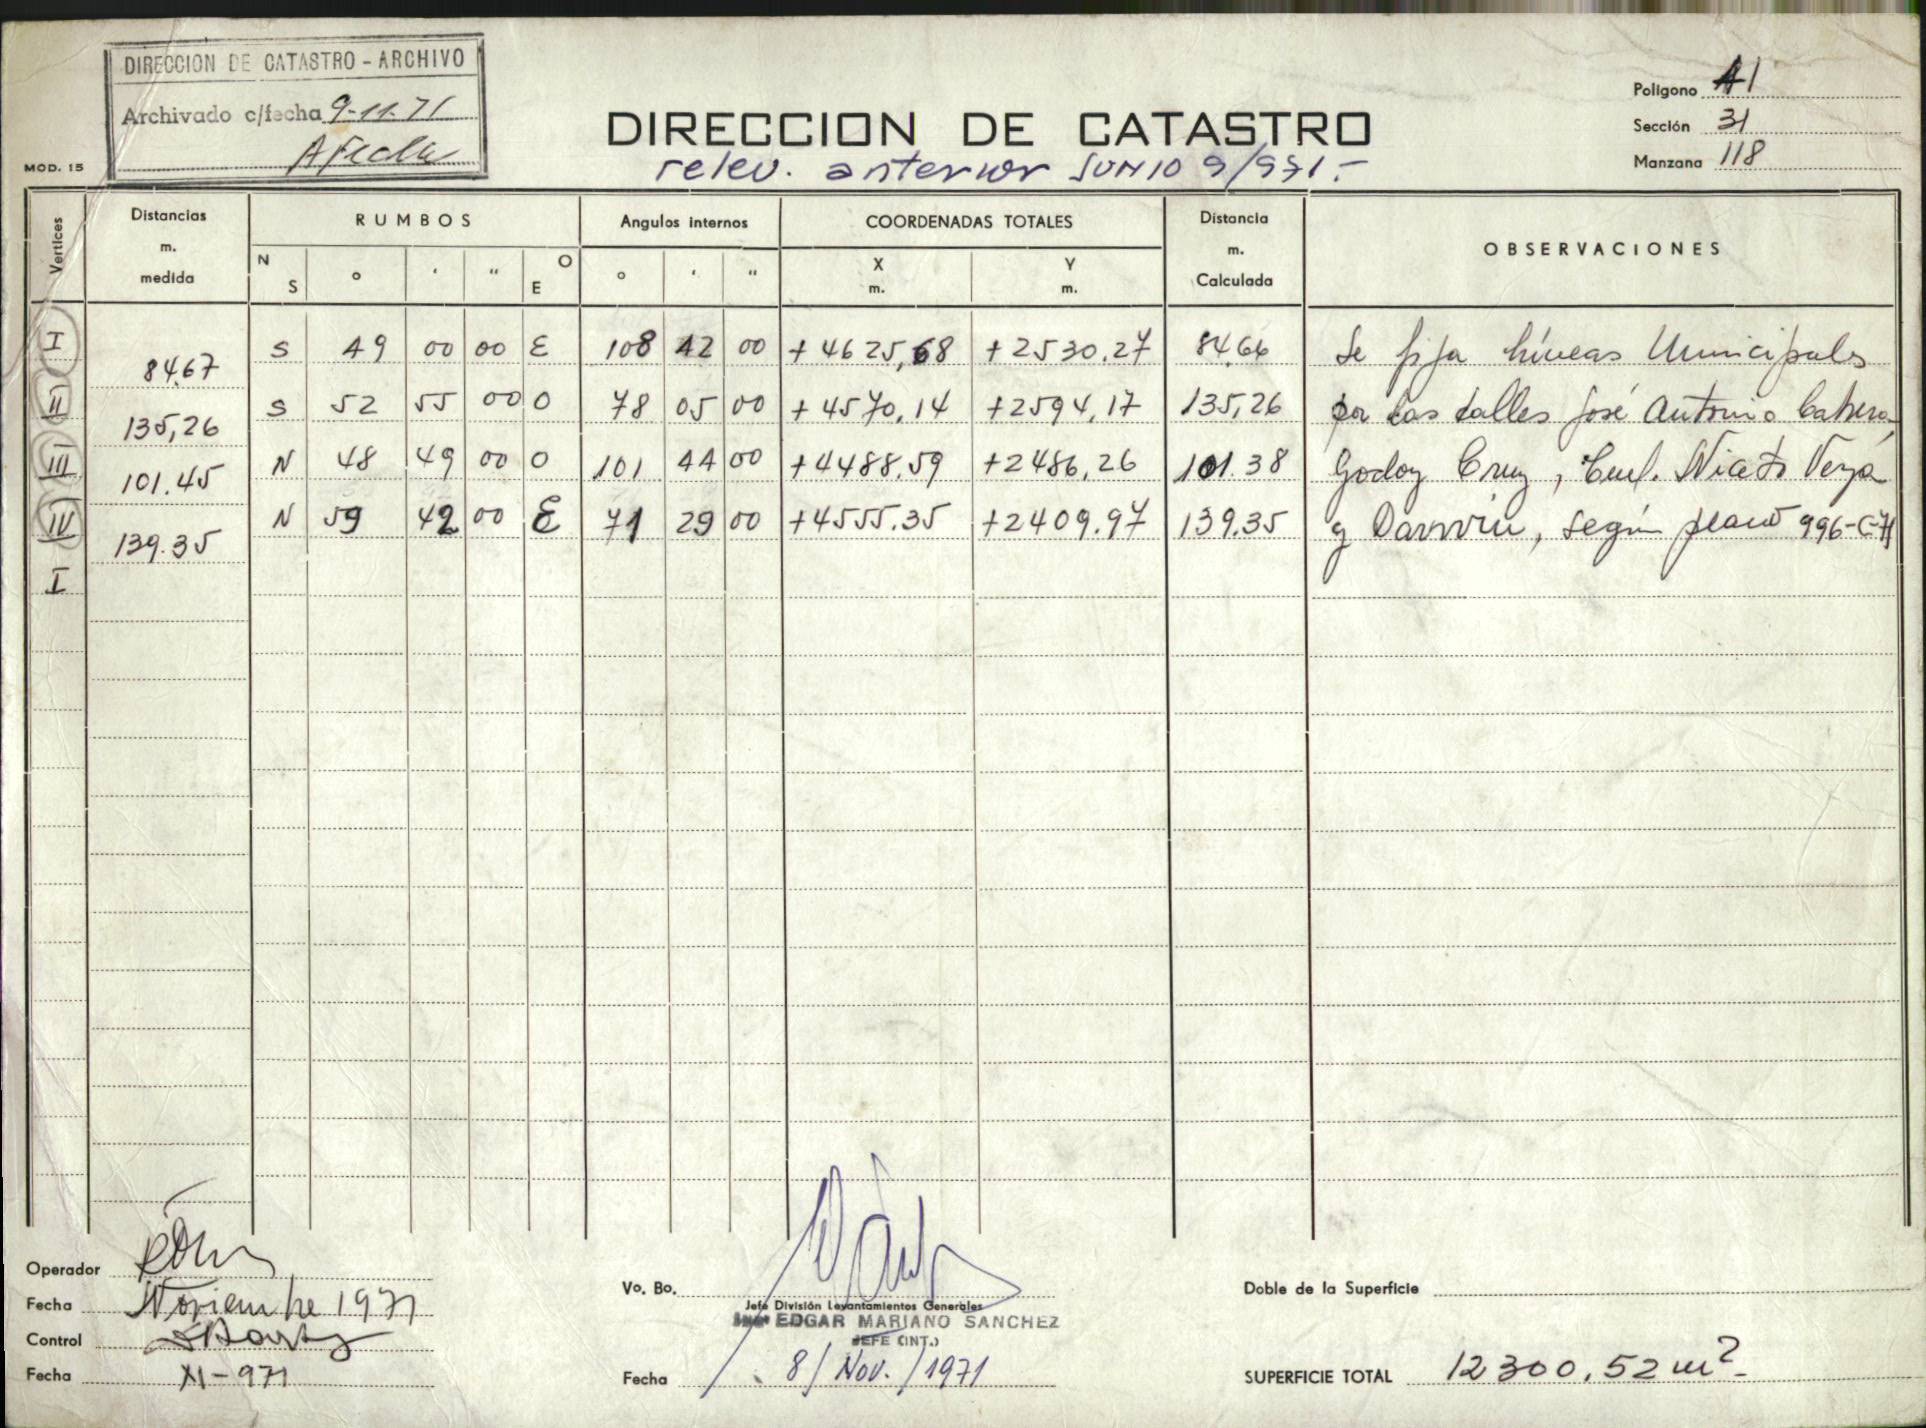 DIRECCION DE CATASTRO - ARCHIVO
Archivado c/fecha 9-11-71
MOD. 15
DIRECCION DE CATASTRO
relev. anterior JUNIO 9/971.-
Poligono A1
Sección 31
Manzana 118
Vertices
Distancias m. medida
RUMBOS
Angulos internos
COORDENADAS TOTALES
Distancia m. Calculada
OBSERVACIONES
N S ° ' " O E ° ' " X m. Y m.
I S 49 00 00 E 108 42 00 + 4625,68 + 2530.27 84.66 Se fija Líneas Municipales
84.67
II S 52 55 00 O 78 05 00 + 4570,14 +2594,17 135,26 por las calles José Antonio Cabrera,
135,26
III N 48 49 00 O 101 44 00 +4488.59 +2486,26 101.38 Godoy Cruz, Cnel. Niceto Vega
101.45
IV N 59 42 00 E 71 29 00 +4555.35 +2409.97 139.35 y Darwin, según plano 996-C-71
139.35
I
Operador
Fecha Noviembre 1971
Control
Fecha XI-971
Vo. Bo.
Jefe División Levantamientos Generales
Ing. EDGAR MARIANO SANCHEZ
JEFE (INT.)
Fecha 8/Nov./1971
Doble de la Superficie
SUPERFICIE TOTAL 12300,52 m².-